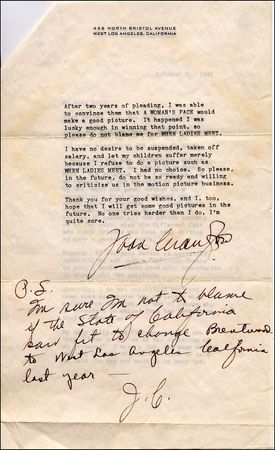 426 NORTH BRISTOL AVENUE
WEST LOS ANGELES, CALIFORNIA
After two years of pleading, I was able
to convince them that A WOMAN'S FACE would
make a good picture. It happened I was
lucky enough in winning that point, so
please do not blame me for WHEN LADIES MEET.
I have no desire to be suspended, taken off
salary, and let my children suffer merely
because I refuse to do a picture such as
WHEN LADIES MEET. I had no choice. So please,
in the future, do not be so ready and willing
to criticize us in the motion picture business.
Thank you for your good wishes, and I, too,
hope that I will get some good pictures in the
future. No one tries harder than I do, I'm
quite sure.
Joan Crawford
P.S.
I'm sure I'm not to blame
if the State of California
saw fit to change Brentwood
to West Los Angeles California
last year —
J.C.